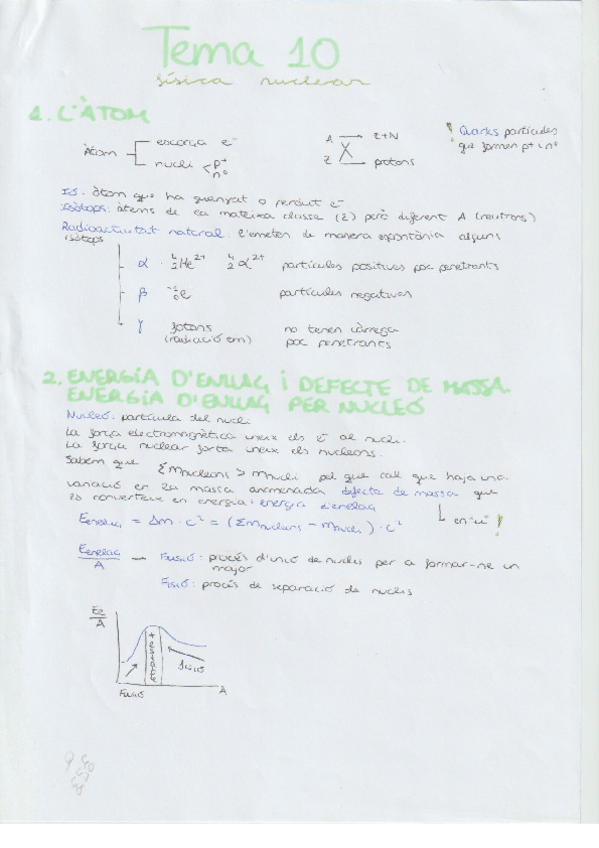 Tema 10
física nuclear
1. L'ÀTOM
Àtom
escorça e⁻
nucli < p⁺ n⁰
A → Z+N
Z → protons
! Quarks partícules
que formen p⁺ i n⁰
Ió: àtom que ha guanyat o perdut e⁻
Isòtops: àtoms de la mateixa classe (Z) però diferent A (neutrons)
Radioactivitat natural: l'emeten de manera espontània alguns
isòtops
α · ⁴₂He²⁺ ⁴₂α²⁺ partícules positives poc penetrants
β · ⁻¹₀e partícules negatives
γ fotons no tenen càrrega
(radiació em) poc penetrants
2. ENERGÍA D'ENLLAÇ I DEFECTE DE MASSA.
ENERGÍA D'ENLLAÇ PER NUCLEÓ
Nucleó: partícula del nucli.
La força electromagnètica uneix els e⁻ al nucli.
La força nuclear forta uneix els nucleons.
Sabem que Σmnucleons > mnucli pel que cal que haja una
variació en la massa anomenada defecte de massa que
es converteix en energia: energia d'enllaç
Eenllaç = Δm · c² = (Σmnucleons − mnucli) · c²
en "u" !
Eenllaç/A — Fusió: procés d'unió de nuclis per a formar-ne un
major
Fisió: procés de separació de nuclis
EE/A
fisió
Fusió
A